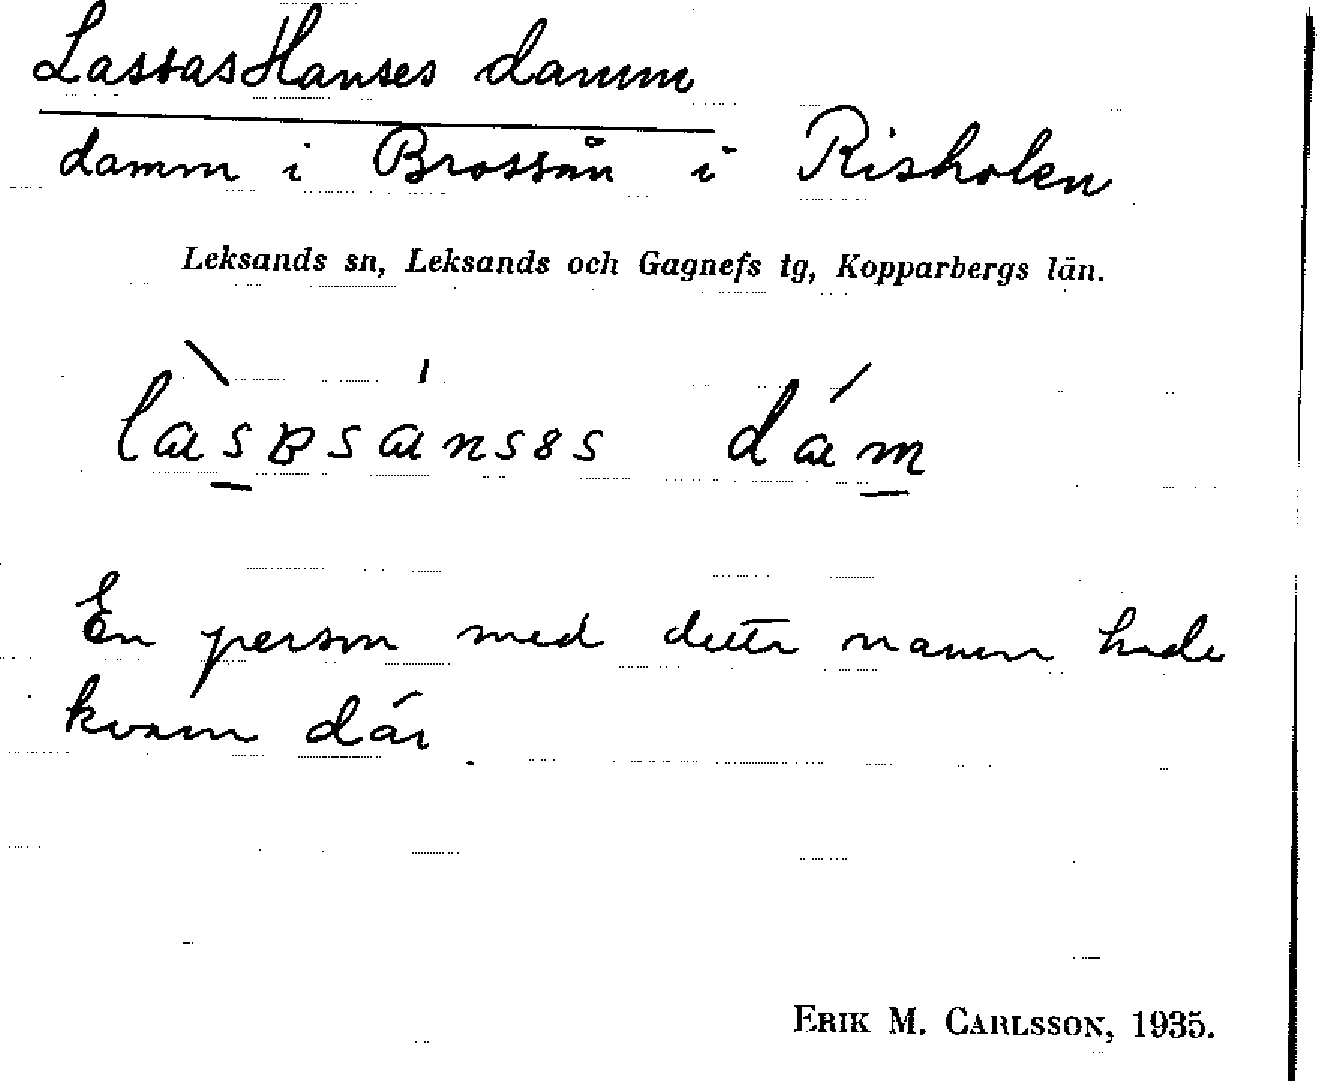 Lassas Hanses damm
damm i Brossån i Risholen
Leksands sn, Leksands och Gagnefs tg, Kopparbergs län.
En person med detta namn hade
kvarn där
ERIK M. CARLSSON, 1935.